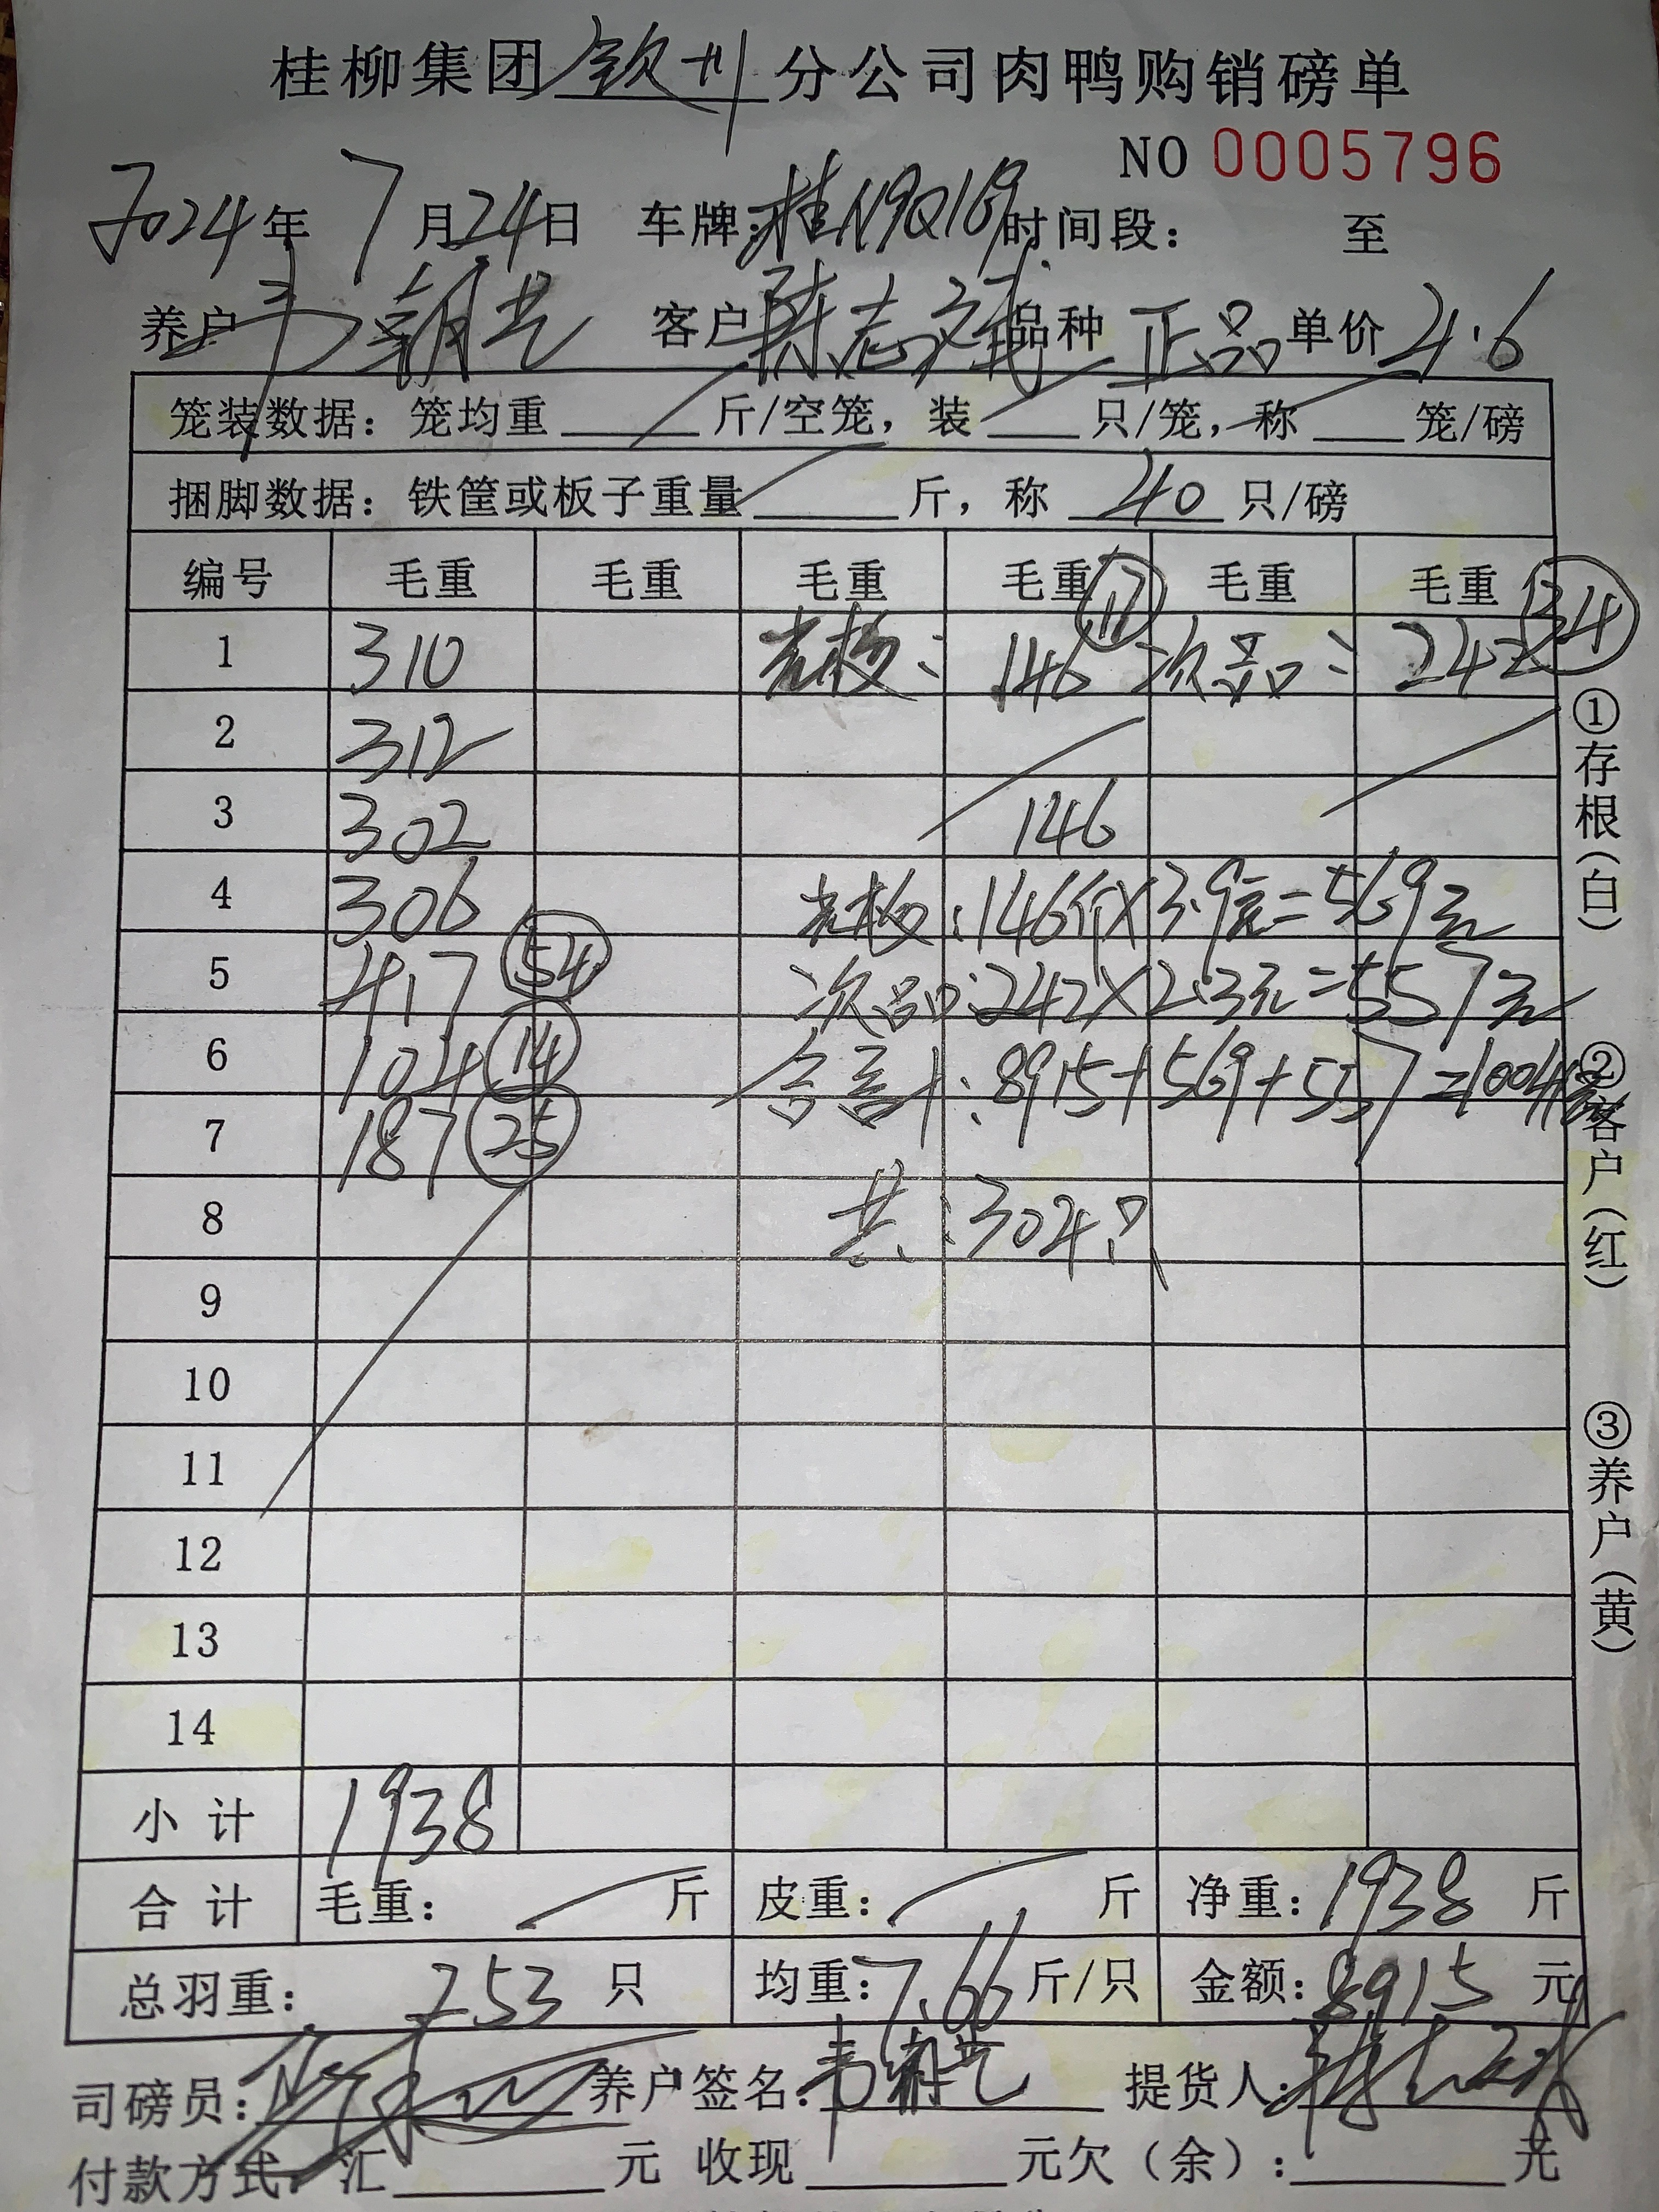 桂柳集团 钦州 分公司肉鸭购销磅单
NO 0005796
2024年 7月24日 车牌:桂N9Q169 时间段: 至
养户 韦朝艺 客户 陈志斌 品种 正品 单价 4.6
笼装数据: 笼均重 斤/空笼, 装 只/笼, 称 笼/磅
捆脚数据: 铁筐或板子重量 斤, 称 40 只/磅
编号 毛重 毛重 毛重 毛重 毛重 毛重
1 310 146 ⑰ 次品: 242 34
2 312
3 302 146
4 306 :146斤×3.9元=569元
5 417 54 次品:242×2.3元=557元
6 104 14 合计:8915+569+557=10041
7 187 25
8 共:304只
9
10
11
12
13
14
小计 1938
合计 毛重: 斤 皮重: 斤 净重: 1938 斤
总羽重: 253 只 均重: 7.66 斤/只 金额: 8915 元
司磅员: 养户签名: 韦朝艺 提货人:
付款方式: 汇 元 收现 元欠(余): 元
①存根(白)
②客户(红)
③养户(黄)